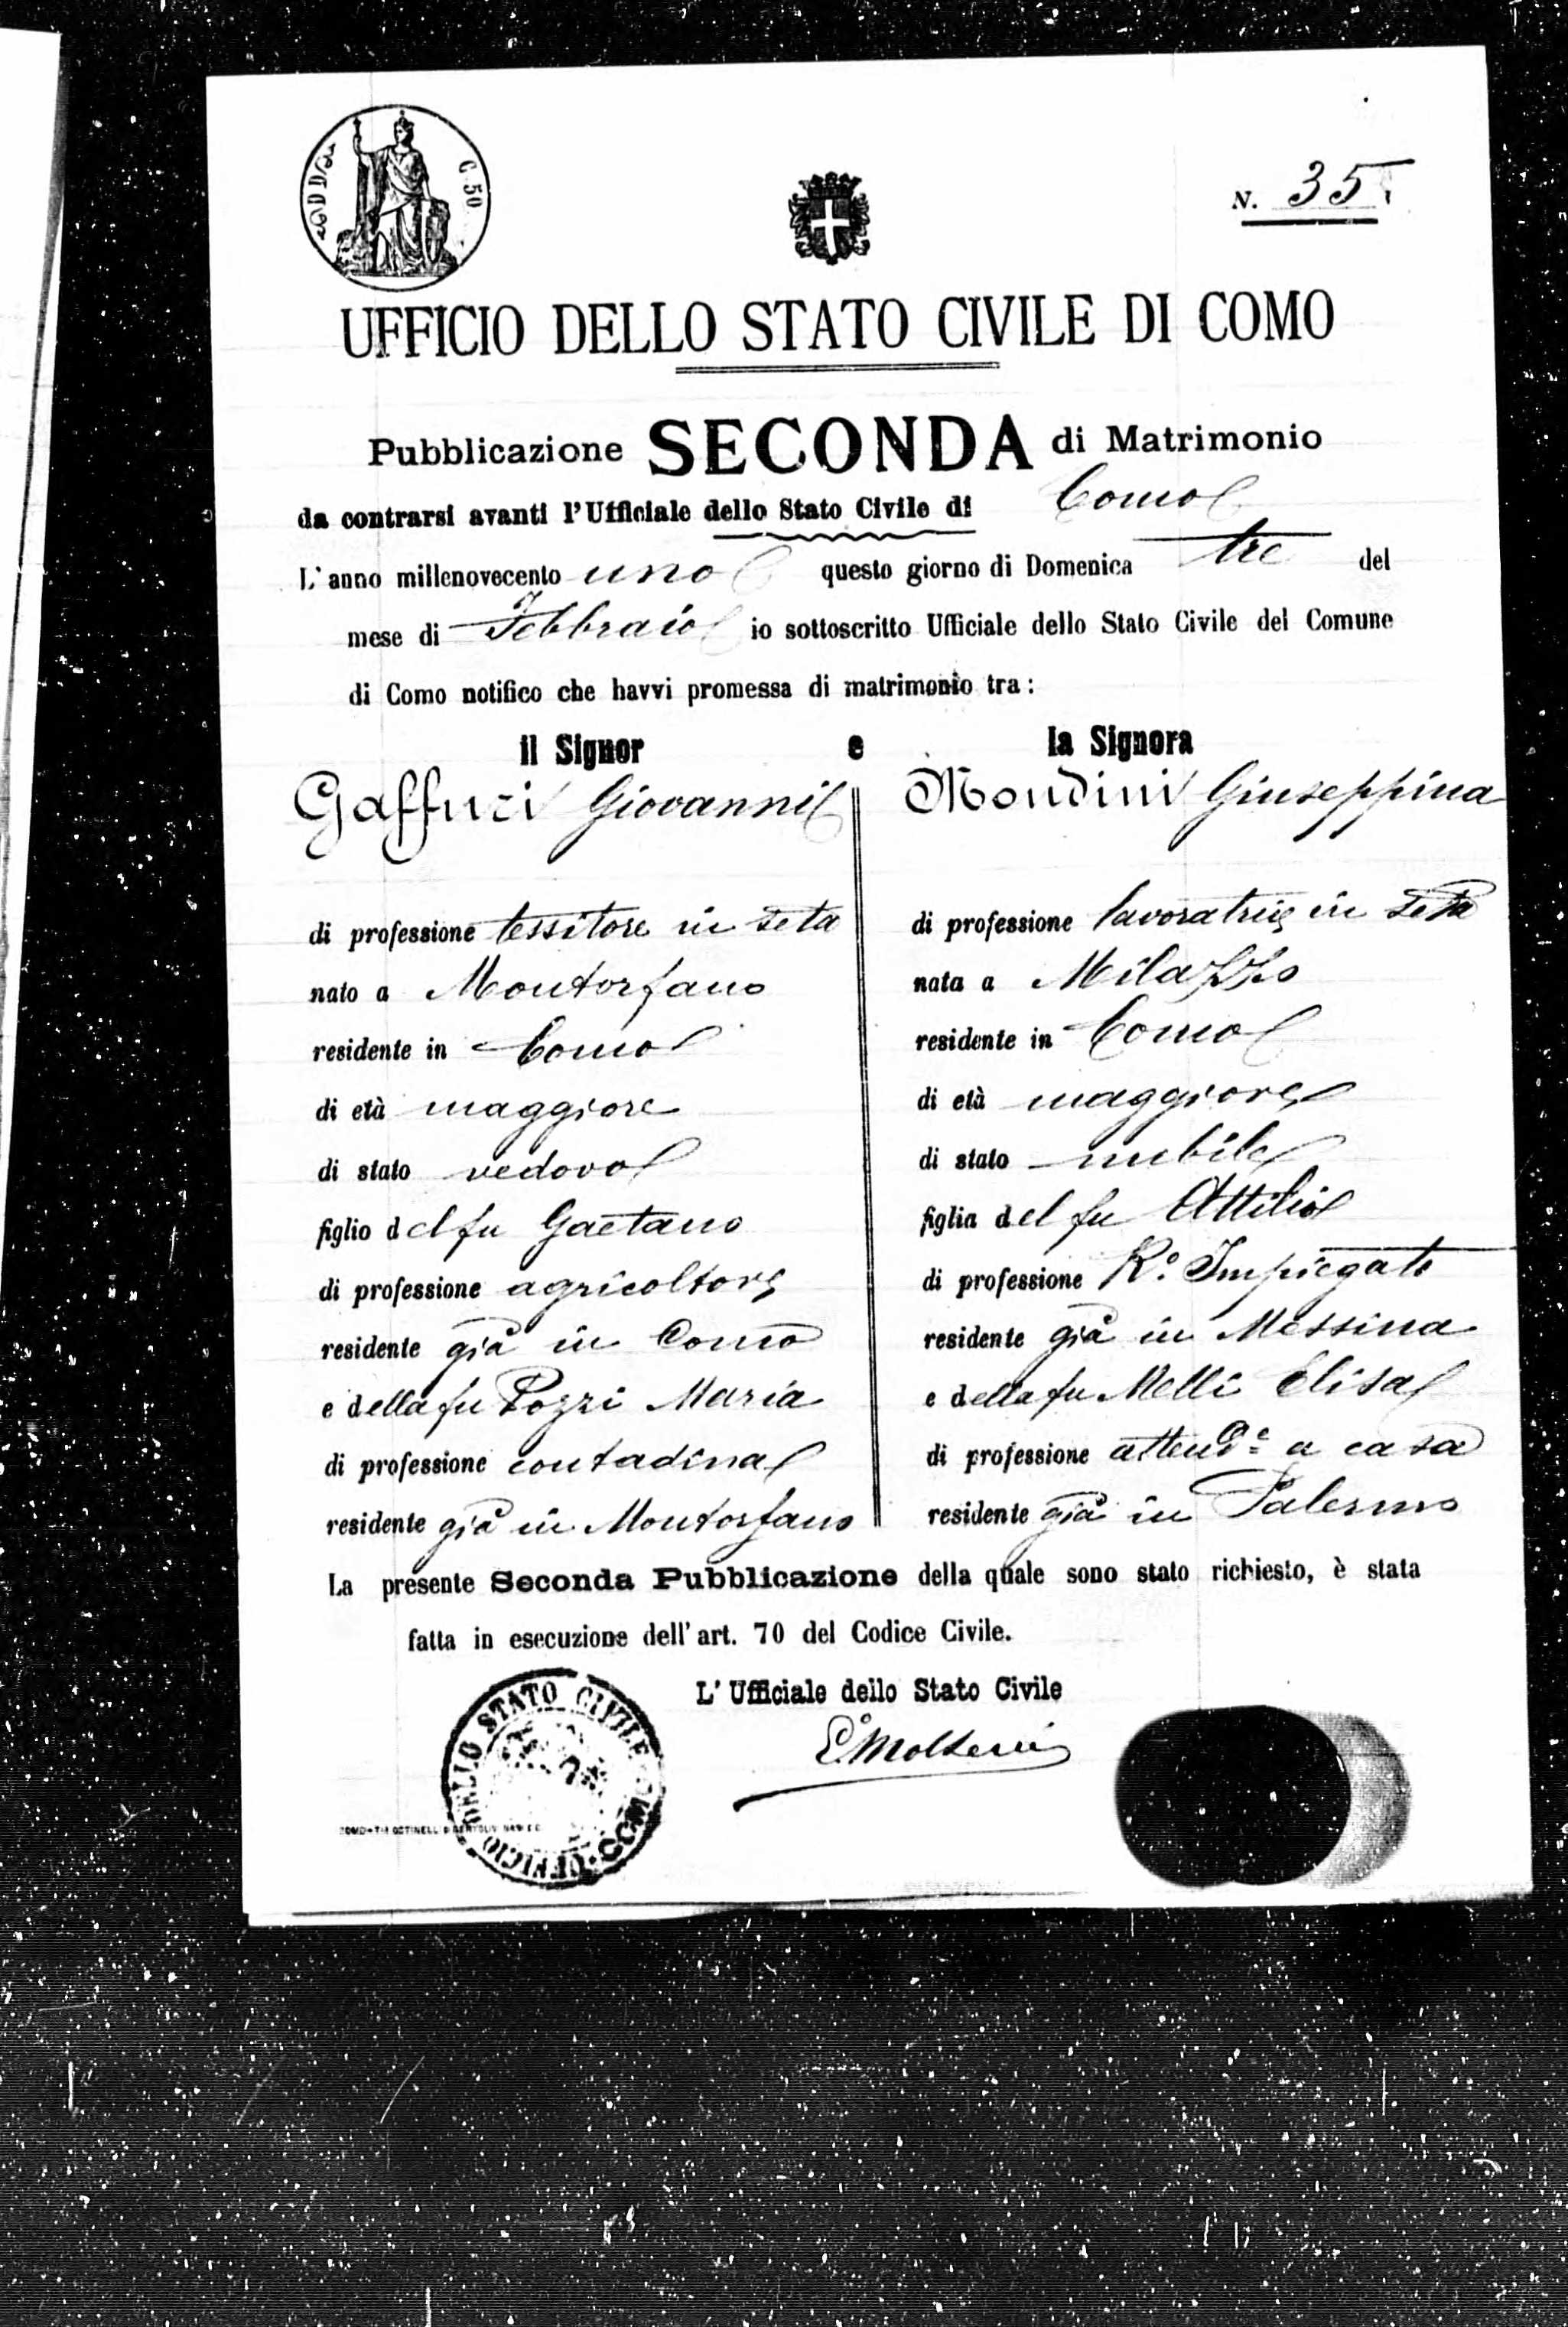 C. 50
N. 35
UFFICIO DELLO STATO CIVILE DI COMO
Pubblicazione SECONDA di Matrimonio
da contrarsi avanti l'Ufficiale dello Stato Civile di Como
L'anno millenovecento uno questo giorno di Domenica tre del
mese di Febbraio io sottoscritto Ufficiale dello Stato Civile del Comune
di Como notifico che havvi promessa di matrimonio tra:
il Signor e la Signora
Gaffuri Giovanni Mondini Giuseppina
di professione tessitore in seta di professione lavoratrice in seta
nato a Montorfano nata a Milazzo
residente in Como residente in Como
di età maggiore di età maggiore
di stato vedovo di stato nubile
figlio del fu Gaetano figlia del fu Attilio
di professione agricoltore di professione R.º Impiegato
residente già in Como residente già in Messina
e della fu Pozzi Maria e della fu Melli Elisa
di professione contadina di professione attend.e a casa
residente già in Montorfano residente già in Palermo
La presente Seconda Pubblicazione della quale sono stato richiesto, è stata
fatta in esecuzione dell'art. 70 del Codice Civile.
L'Ufficiale dello Stato Civile
UFFICIO DELLO STATO CIVILE COMO